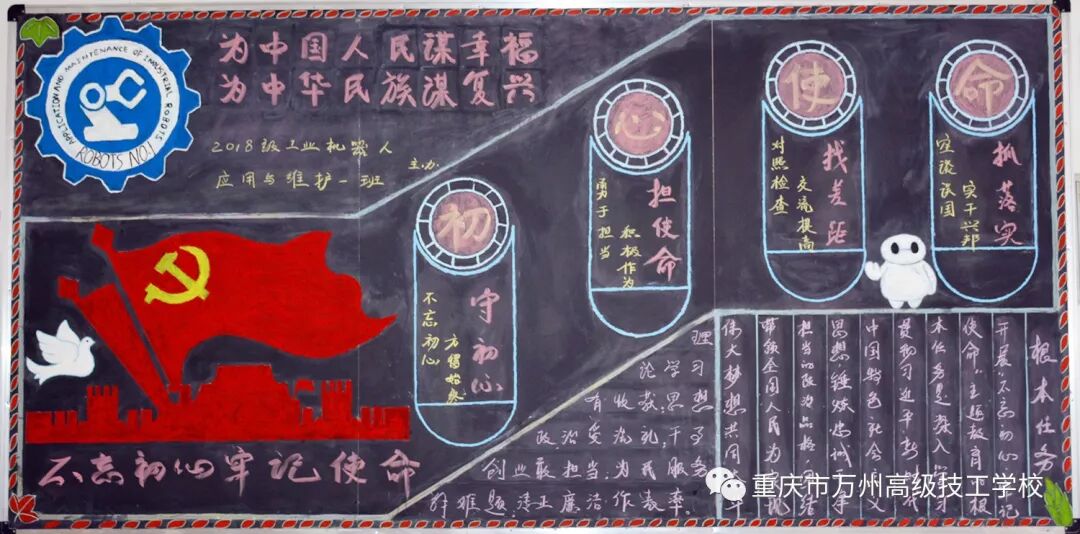 为中国人民谋幸福
为中华民族谋复兴
APPLICATION AND MAINTENANCE OF INDUSTRIAL ROBOTS
ROBOTS NO.1
2018级工业机器人
应用与维护一班
主办
初
守初心
不忘初心
方得始终
心
担使命
勇于担当
积极作为
使
找差距
对照检查
交流提高
命
抓落实
空谈误国
实干兴邦
不忘初心牢记使命
根本任务
开展"不忘初心 牢记
使命"主题教育 根
本任务是深入学
贯彻习近平新时代
中国特色社会主义
思想锤炼忠诚干净
担当的政治品格 团结
带领全国人民为实现
伟大梦想共同奋斗
理论学习有收获,思想
政治受洗礼,干事
创业敢担当,为民服务
解难题,清正廉洁作表率。
重庆市万州高级技工学校